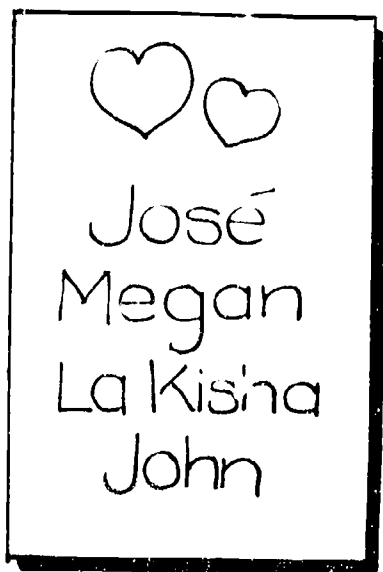 José
Megan
La Kisha
John